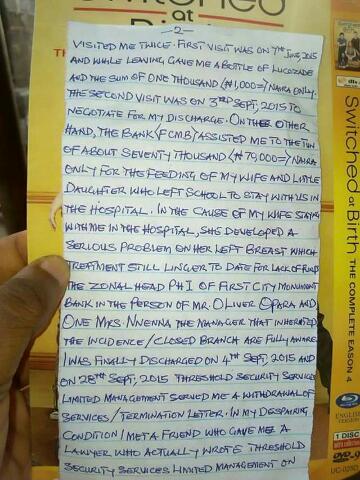 Switched
at
-2-
VISITED ME TWICE. FIRST VISIT WAS ON 7TH JUNE, 2015
AND WHILE LEAVING GAVE ME A BOTTLE OF LUCOZADE
AND THE SUM OF ONE THOUSAND (₦1,000=) NAIRA ONLY.
THE SECOND VISIT WAS ON 3RD SEPT, 2015 TO
NEGOTIATE FOR MY DISCHARGE. ON THE OTHER
HAND, THE BANK (FCMB) ASSISTED ME TO THE TUN
OF ABOUT SEVENTY THOUSAND (₦70,000=) NAIRA
ONLY FOR THE FEEDING OF MY WIFE AND LITTLE
DAUGHTER WHO LEFT SCHOOL TO STAY WITH US IN
THE HOSPITAL. IN THE CAUSE OF MY WIFE STAYING
WITH ME IN THE HOSPITAL, SHE DEVELOPED A
SERIOUS PROBLEM ON HER LEFT BREAST WHICH
TREATMENT STILL LINGER TO DATE FOR LACK OF FUNDS
THE ZONAL HEAD PH 1 OF FIRST CITY MONUMENT
BANK IN THE PERSON OF MR. OLIVER OPARA AND
ONE MRS. NNENNA THE MANAGER THAT INHERITED
THE INCIDENCE/CLOSED BRANCH ARE FULLY AWARE.
I WAS FINALLY DISCHARGED ON 4TH SEPT, 2015 AND
ON 28TH SEPT, 2015 THRESHOLD SECURITY SERVICES
LIMITED MANAGEMENT SERVED ME A WITHDRAWAL OF
SERVICES/TERMINATION LETTER. IN MY DESPARING
CONDITION I MET A FRIEND WHO GAVE ME A
LAWYER WHO ACTUALLY WROTE THRESHOLD
SECURITY SERVICES LIMITED MANAGEMENT ON
Switched at Birth THE COMPLETE EASON 4
ENGLISH
VERSION
1 DISC
DVD-9